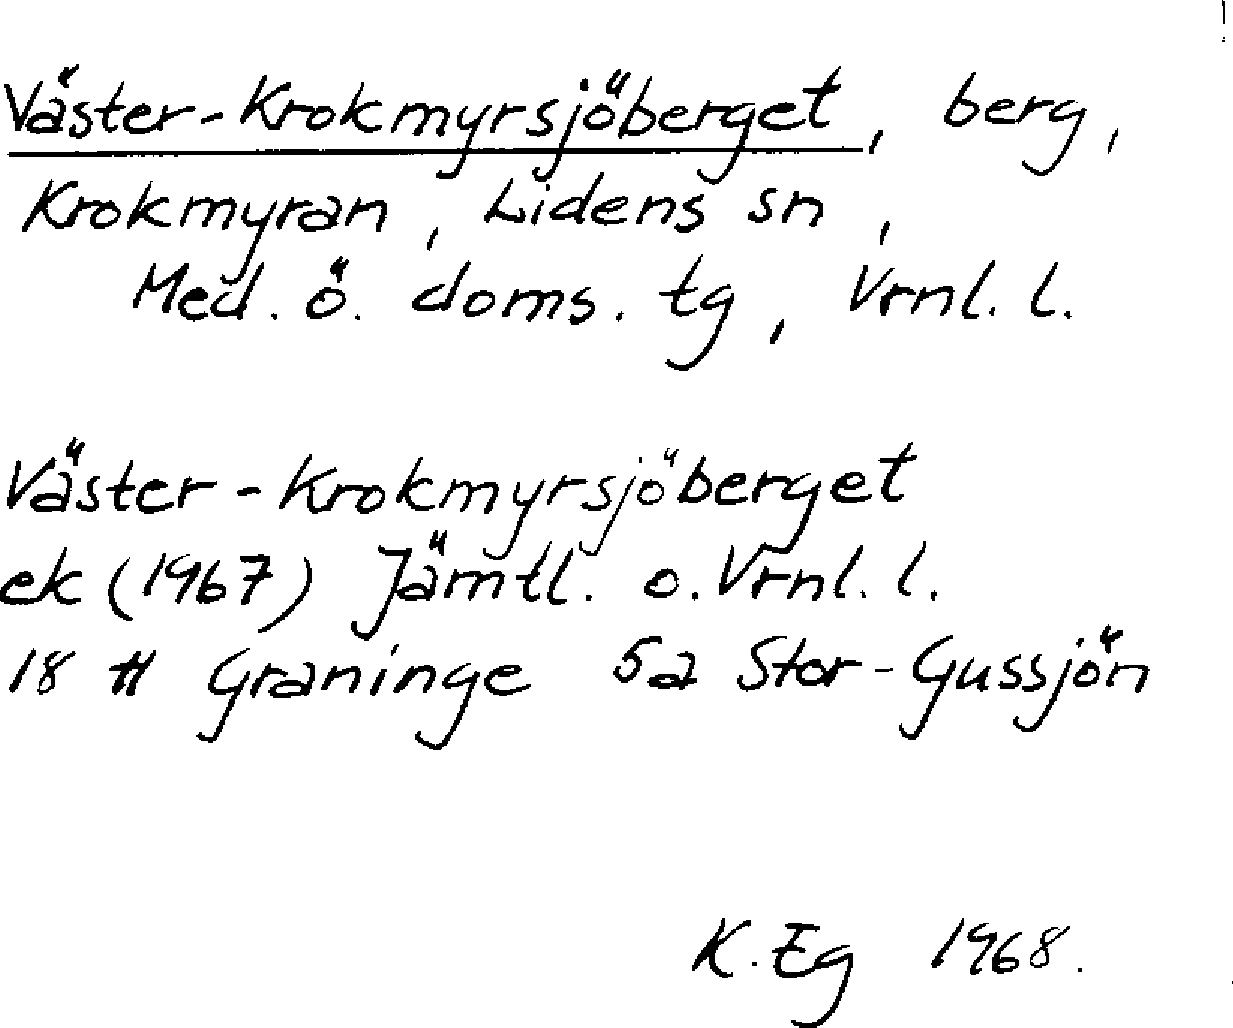 Väster-Krokmyrsjöberget, berg,
Krokmyran, Lidens sn,
Med. ö. doms. tg, Vrnl. l.
Väster-Krokmyrsjöberget
ek (1967) Jämtl. o. Vrnl. l.
18 H Graninge 5a Stor-Gussjön
K. Eg 1968.